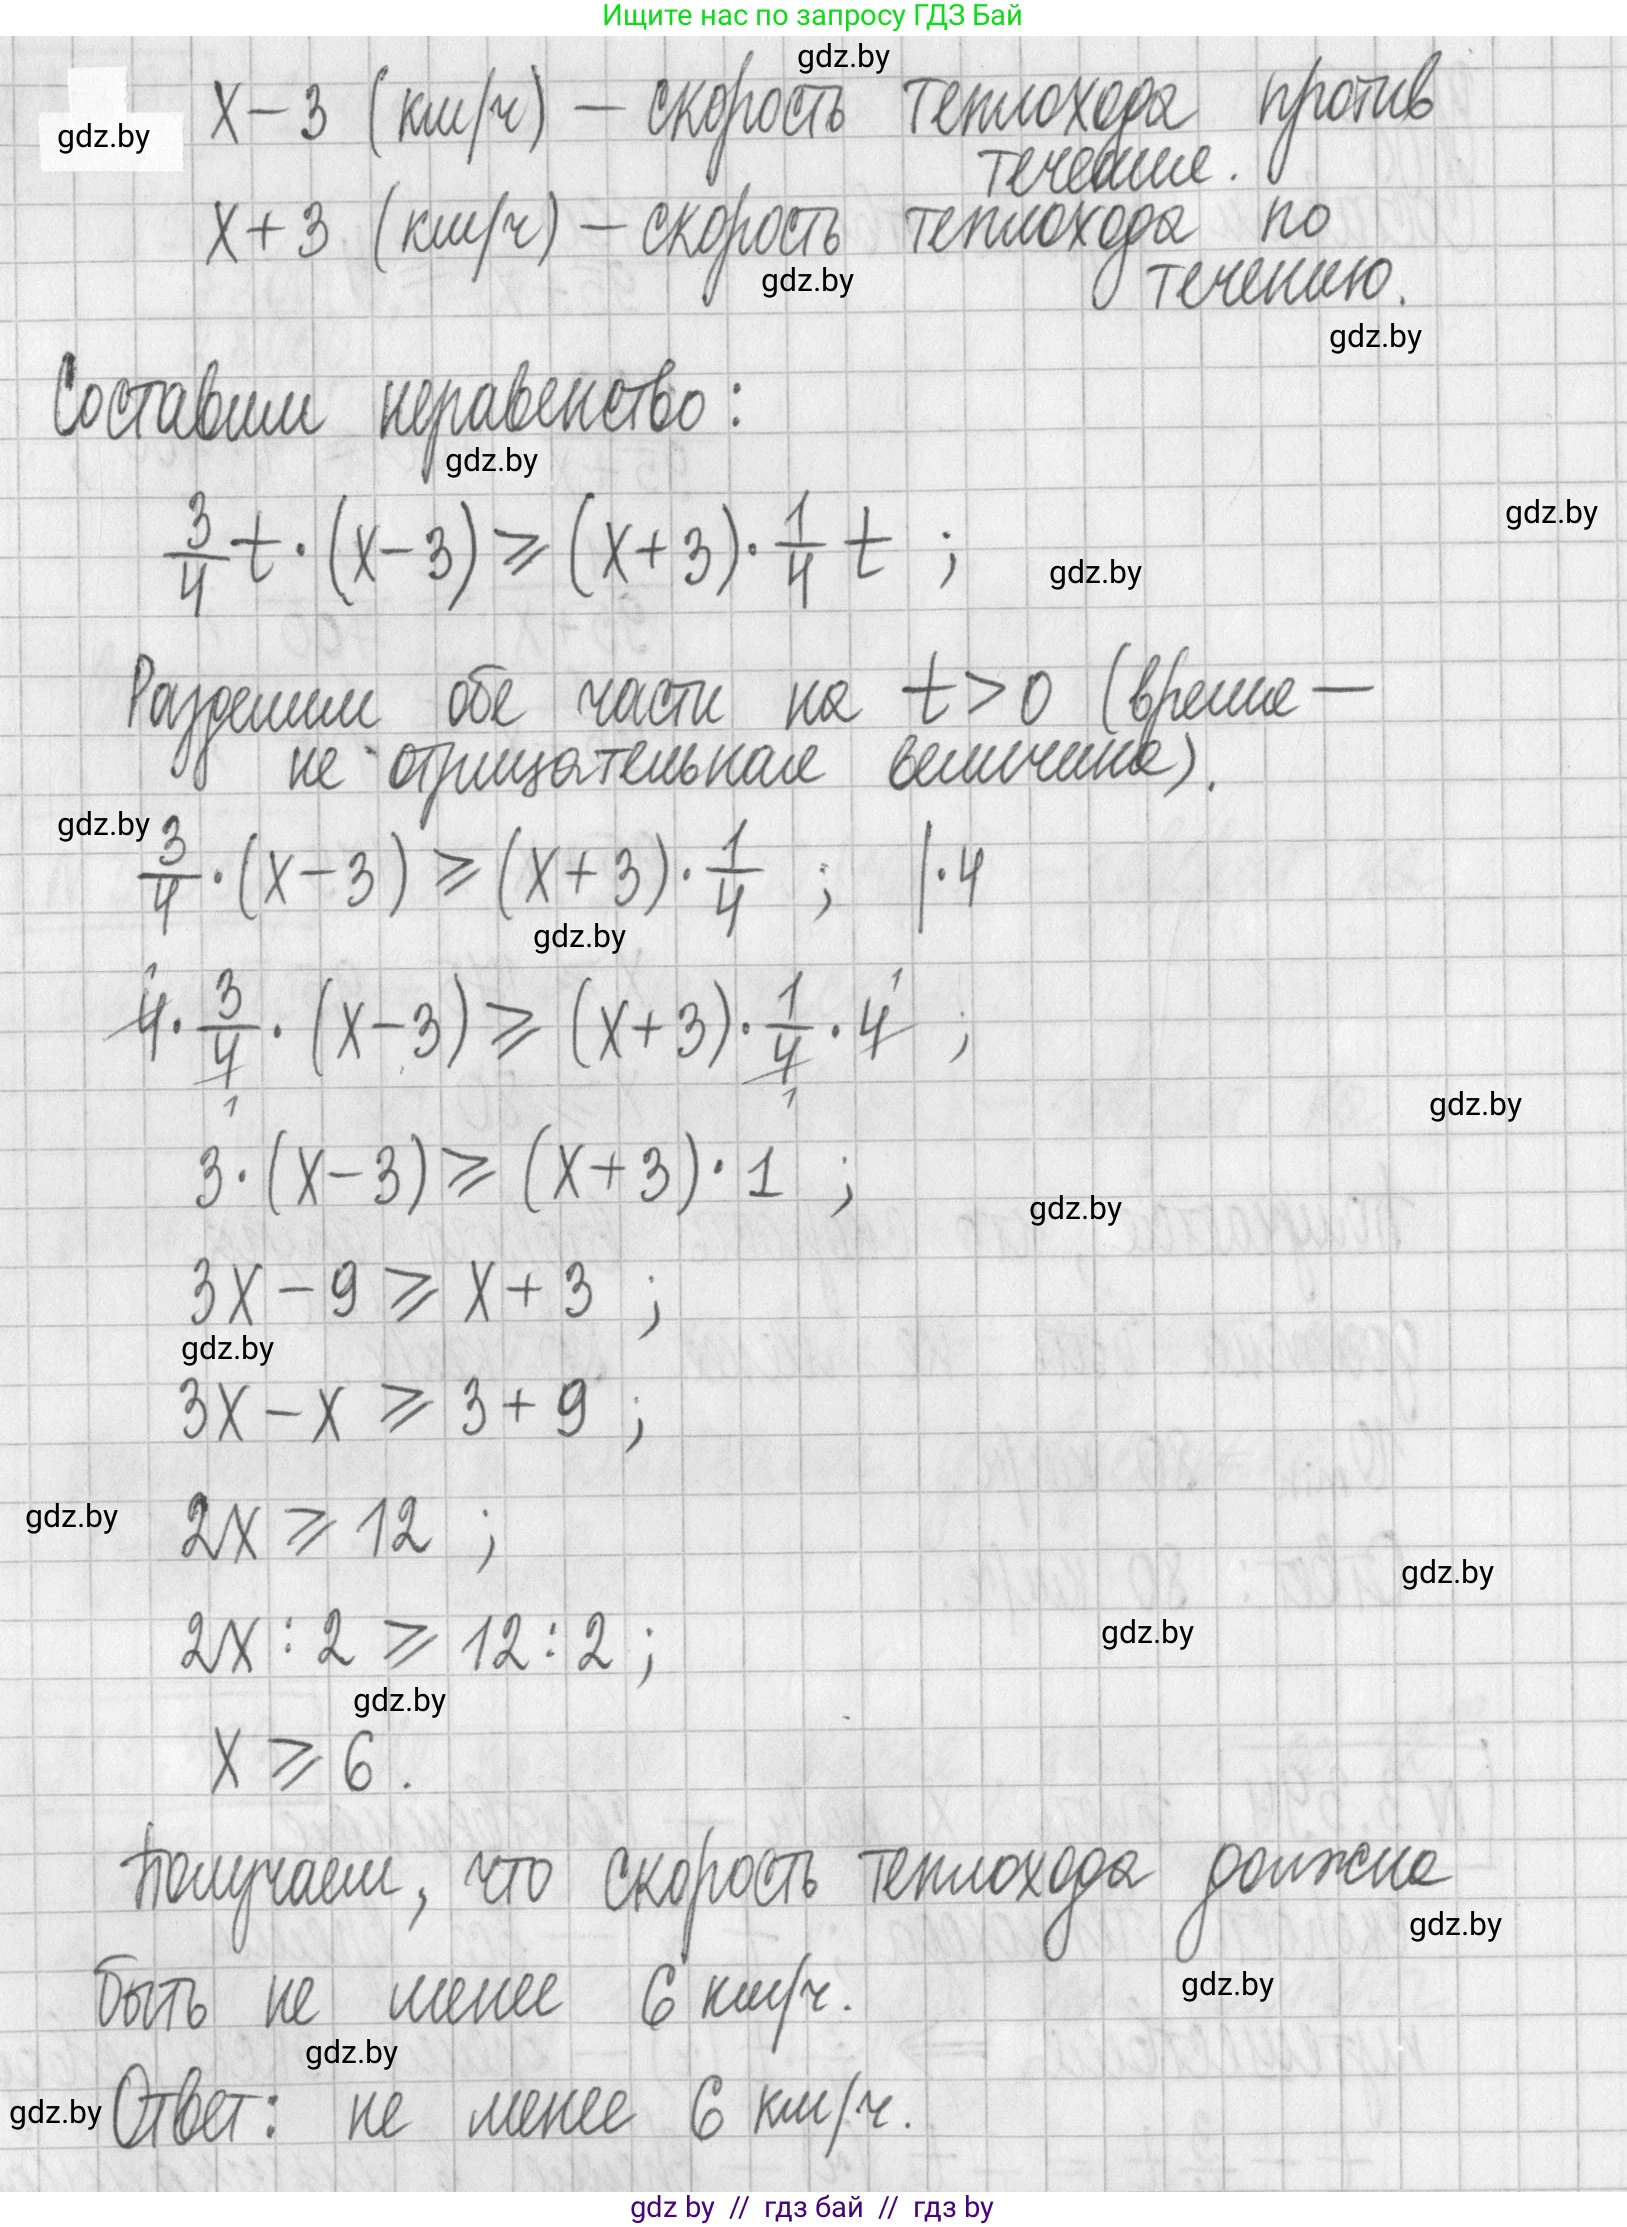 Ищите нас по запросу ГДЗ Бай
gdz.by
x - 3 (км/ч) — скорость теплохода против
gdz.by
течения.
x + 3 (км/ч) — скорость теплохода по
gdz.by
течению.
gdz.by
Составим неравенство:
gdz.by
gdz.by
3/4 t · (x - 3) ⩾ (x + 3) · 1/4 t ;
gdz.by
Разделим обе части на t > 0 (время —
не отрицательная величина).
gdz.by
3/4 · (x - 3) ⩾ (x + 3) · 1/4 ; | · 4
gdz.by
4 · 3/4 · (x - 3) ⩾ (x + 3) · 1/4 · 4 ;
gdz.by
3 · (x - 3) ⩾ (x + 3) · 1 ;
gdz.by
3x - 9 ⩾ x + 3 ;
gdz.by
3x - x ⩾ 3 + 9 ;
gdz.by
2x ⩾ 12 ;
gdz.by
gdz.by
2x : 2 ⩾ 12 : 2 ;
gdz.by
x ⩾ 6 .
Получаем, что скорость теплохода должна
gdz.by
быть не менее 6 км/ч.
gdz.by
gdz.by
gdz.by
Ответ: не менее 6 км/ч.
gdz by // гдз бай // гдз by